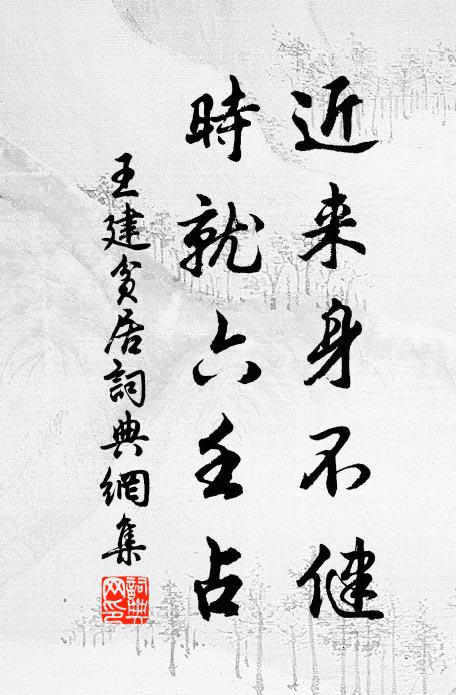 近来身不健
時就六壬占
王建貧居詞典網集
詞典网印